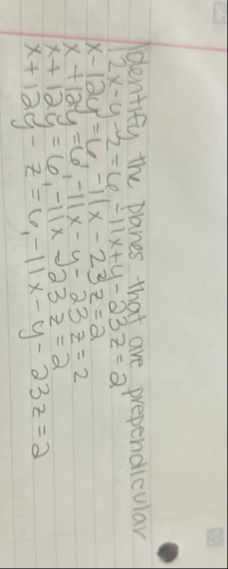 Identify the planes that are prependicular
12x-y-z=6, -11x+y-23z=2
x-12y=6, -11x-23z=2
x+12y=6, -11x-y-23z=2
x+12y=6, -11x-23z=2
x+12y-z=6, -11x-y-23z=2